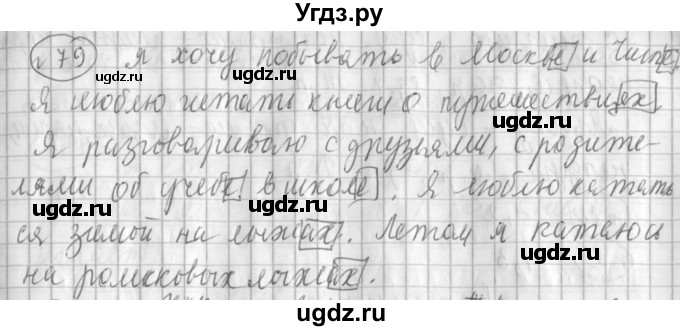 Угдз.ру
79 Я хочу побывать в Москве и Чите.
Я люблю читать книги о путешествиях.
Я разговариваю с друзьями, с родите-
лями об учебе в школе. Я люблю катать
ся зимой на лыжах. Летом я катаюсь
на роликовых лыжах.
ugdz.ru
ugdz.ru
ugdz.ru
ugdz.ru
ugdz.ru
ugdz.ru
ugdz.ru
ugdz.ru